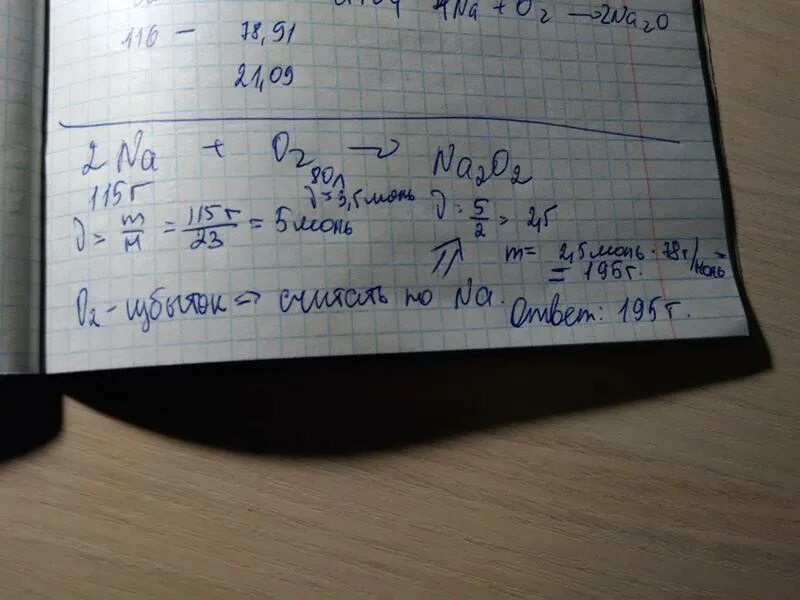 4Na + O₂ → 2Na₂O
116 — 78,91
21,09
2Na + O₂ → Na₂O₂
115г 80л
ν = 3,5 моль
ν = m/M = 115г/23 = 5 моль
ν = 5/2 = 2,5
m = 2,5 моль · 78 г/моль =
= 195 г.
O₂ - избыток ⇒ считать по Na.
Ответ: 195 г.